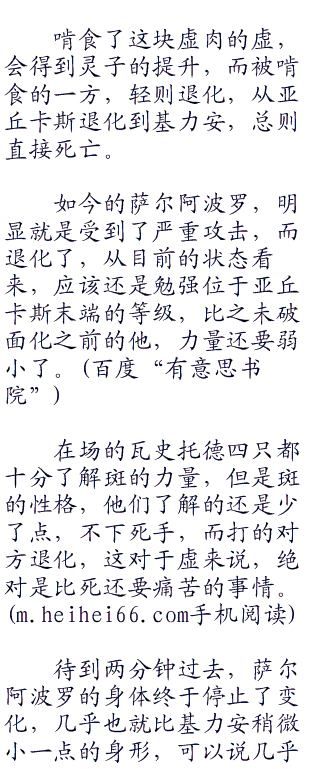 啃食了这块虚肉的虚，
会得到灵子的提升，而被啃
食的一方，轻则退化，从亚
丘卡斯退化到基力安，总则
直接死亡。
如今的萨尔阿波罗，明
显就是受到了严重攻击，而
退化了，从目前的状态看
来，应该还是勉强位于亚丘
卡斯末端的等级，比之未破
面化之前的他，力量还要弱
小了。(百度“有意思书
院”)
在场的瓦史托德四只都
十分了解斑的力量，但是斑
的性格，他们了解的还是少
了点，不下死手，而打的对
方退化，这对于虚来说，绝
对是比死还要痛苦的事情。
(m.heihei66.com手机阅读)
待到两分钟过去，萨尔
阿波罗的身体终于停止了变
化，几乎也就比基力安稍微
小一点的身形，可以说几乎